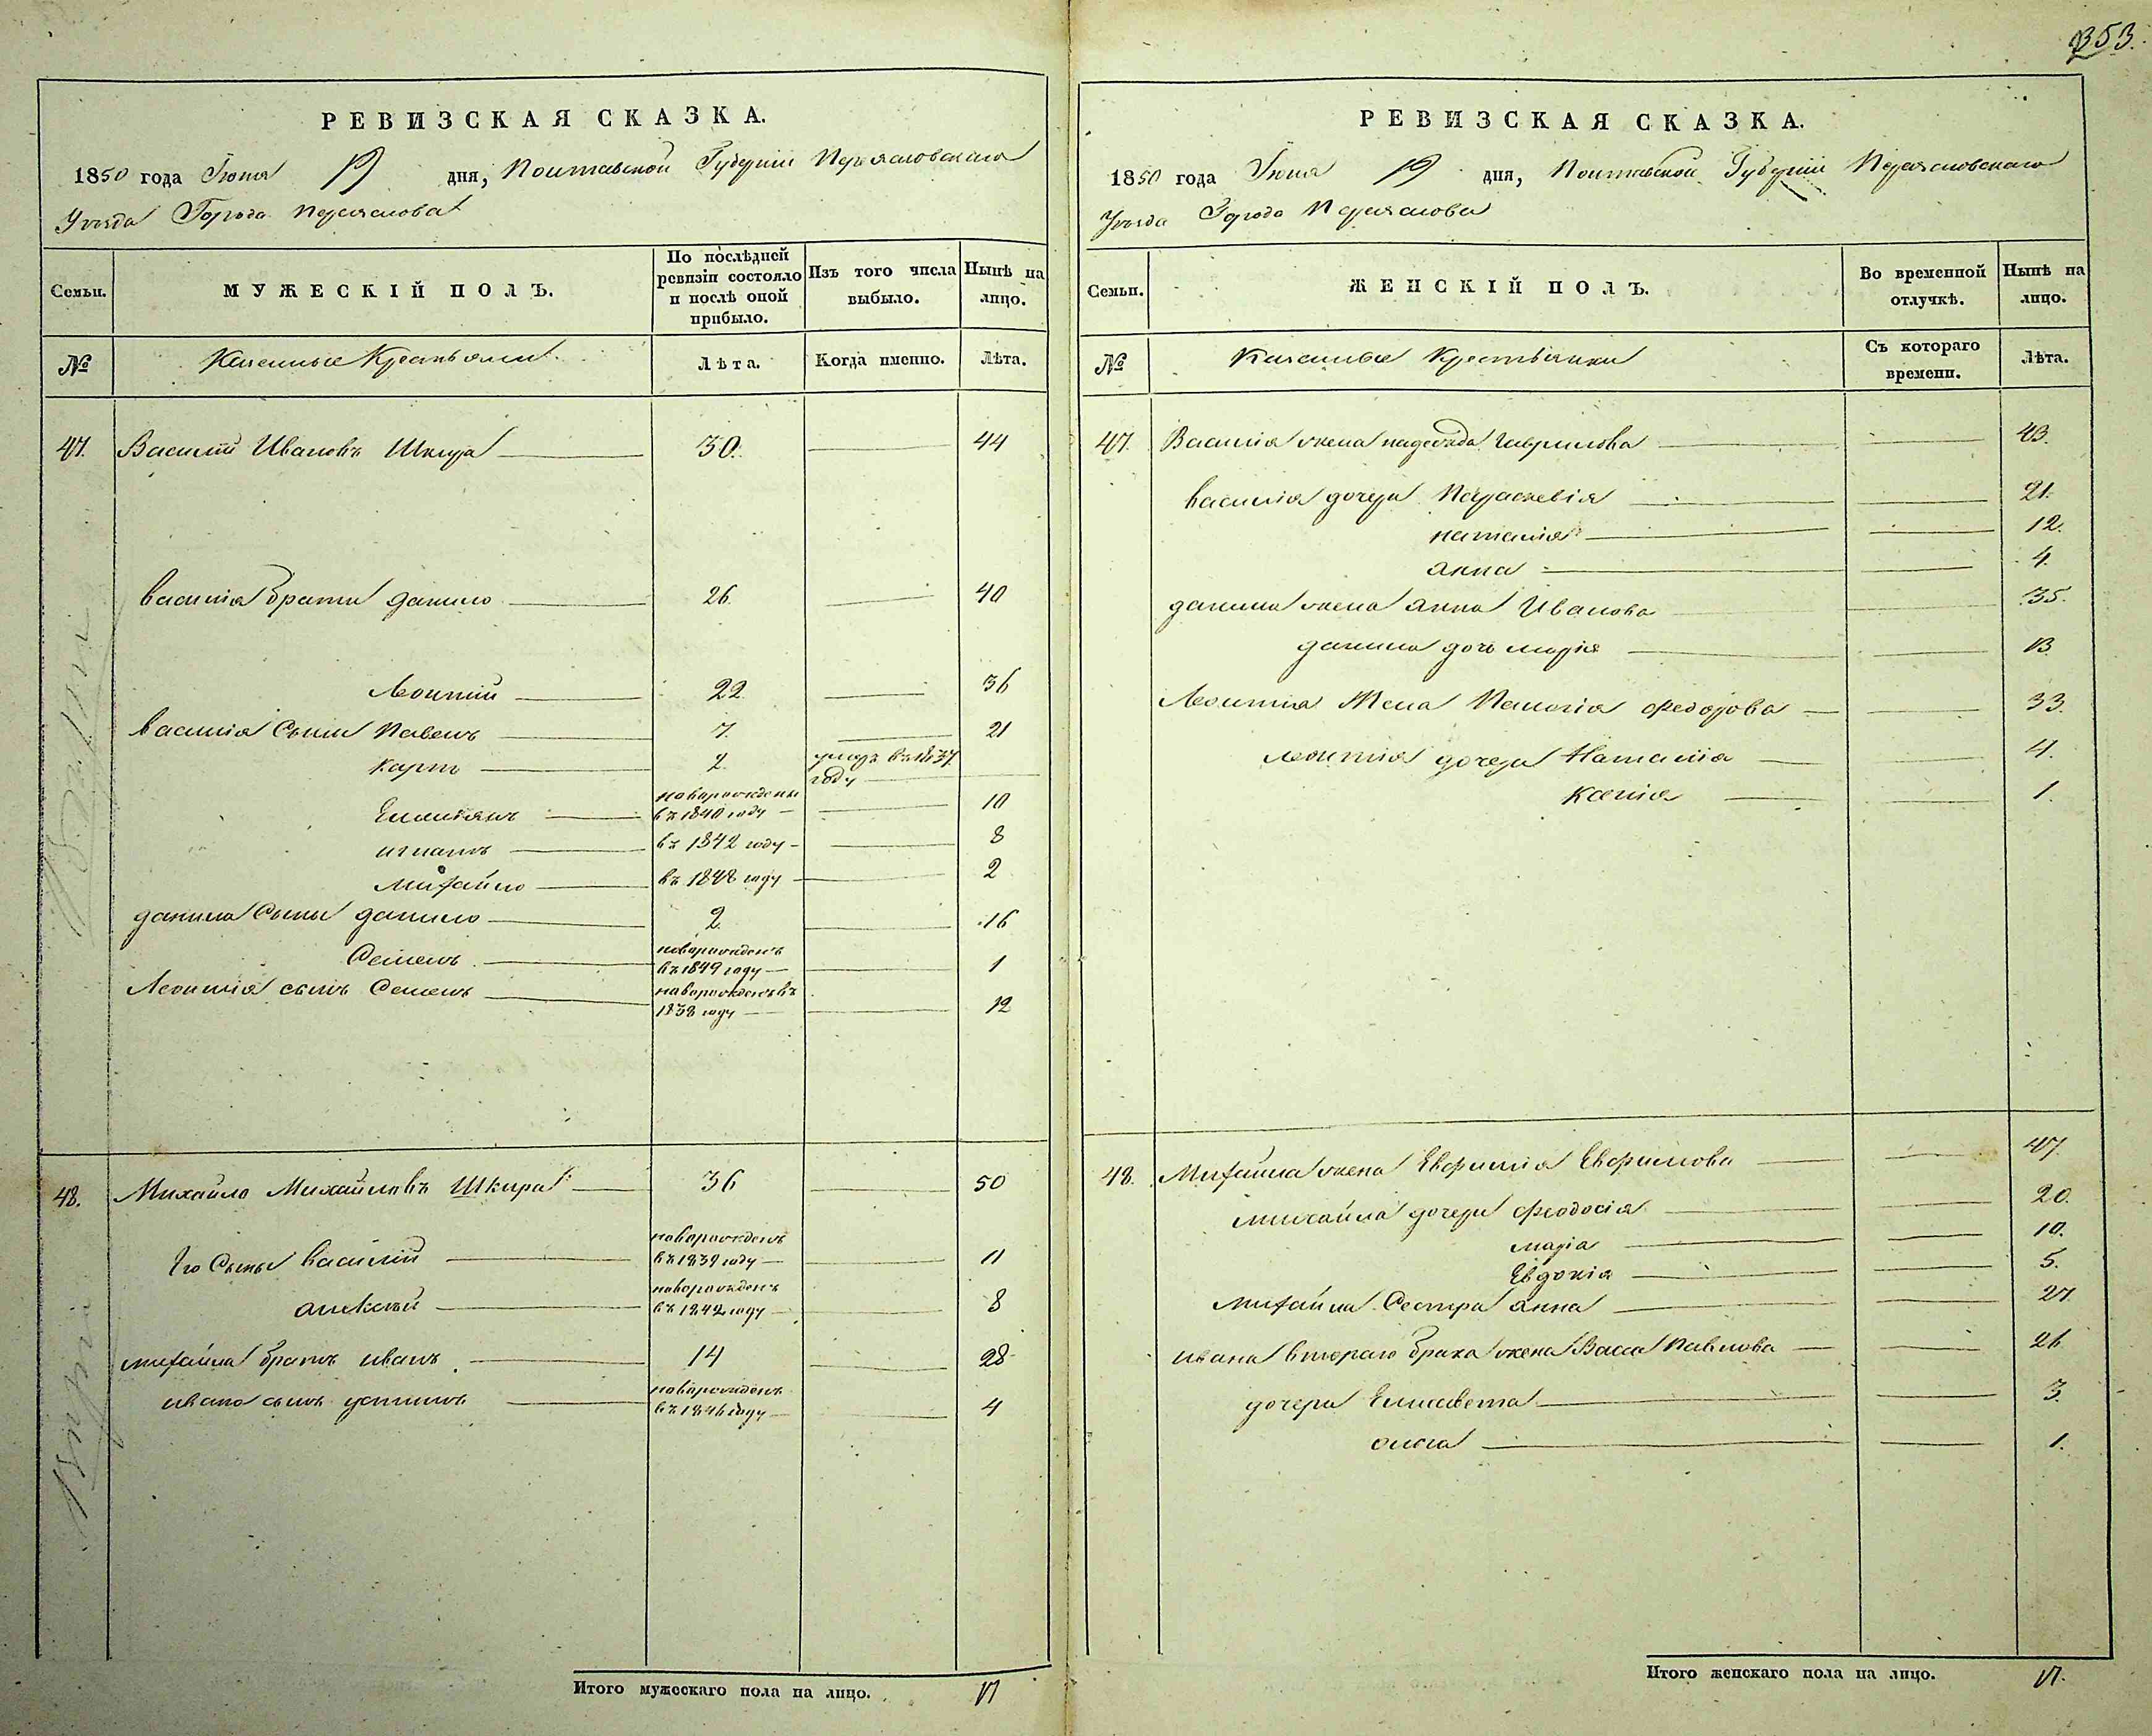 353.
РЕВИЗСКАЯ СКАЗКА.
1850 года Іюня 19 дня, Полтавской Губерніи Переясловскаго
Уезда Города Переяслова
Семьи.
МУЖЕСКІЙ ПОЛЪ.
По послѣдней ревизіи состояло и послѣ оной прибыло.
Изъ того числа выбыло.
Нынѣ на лицо.
№
Казенные Крестьяни
Лѣта.
Когда именно.
Лѣта.
47. Василій Ивановъ Шкира 30. 44
Василія братья данило 26. 40
Леонтій 22. 36
Василія Сыны Павелъ 7. 21
Карпъ 2. умеръ въ 1837 году
Емиліянъ новорожденъ въ 1840 году 10
игнатъ въ 1842 году 8
Михайло въ 1848 году 2
данила Сыны данило 2. 16
Семенъ новорожденъ въ 1849 году 1
Леонтія сынъ Семенъ новорожденъ въ 1838 году 12
48. Михайло Михайловъ Шкира 36 50
Его Сыны Василій новорожденъ въ 1839 году 11
алексѣй новорожденъ въ 1842 году 8
михайла братъ иванъ 14 28
ивана сынъ устинъ новорожденъ въ 1846 году 4
Итого мужескаго пола на лицо. 17
РЕВИЗСКАЯ СКАЗКА.
1850 года Іюня 19 дня, Полтавской Губерніи Переясловскаго
Уезда Города Переяслова
Семьи.
ЖЕНСКІЙ ПОЛЪ.
Во временной отлучкѣ.
Нынѣ на лицо.
№
Казенные Крестьянки
Съ котораго времени.
Лѣта.
47. Василія жена надежда Гаврилова 43.
Василія дочери Параскевія 21.
наталія 12.
анна 4.
данила жена анна Иванова 35.
данила дочь марія 13
Леонтія Жена Пелагія Федорова 33.
леонтія дочери Наталія 4.
Ксенія 1.
48. Михайла жена Евфимія Евфимова 47.
михайла дочери Феодосія 20.
марія 10.
Евдокія 5.
михайла Сестра анна 27.
ивана втораго брака жена Васса Павлова 26
дочери Елисавета 3.
олга 1.
Итого женскаго пола на лицо. 17.